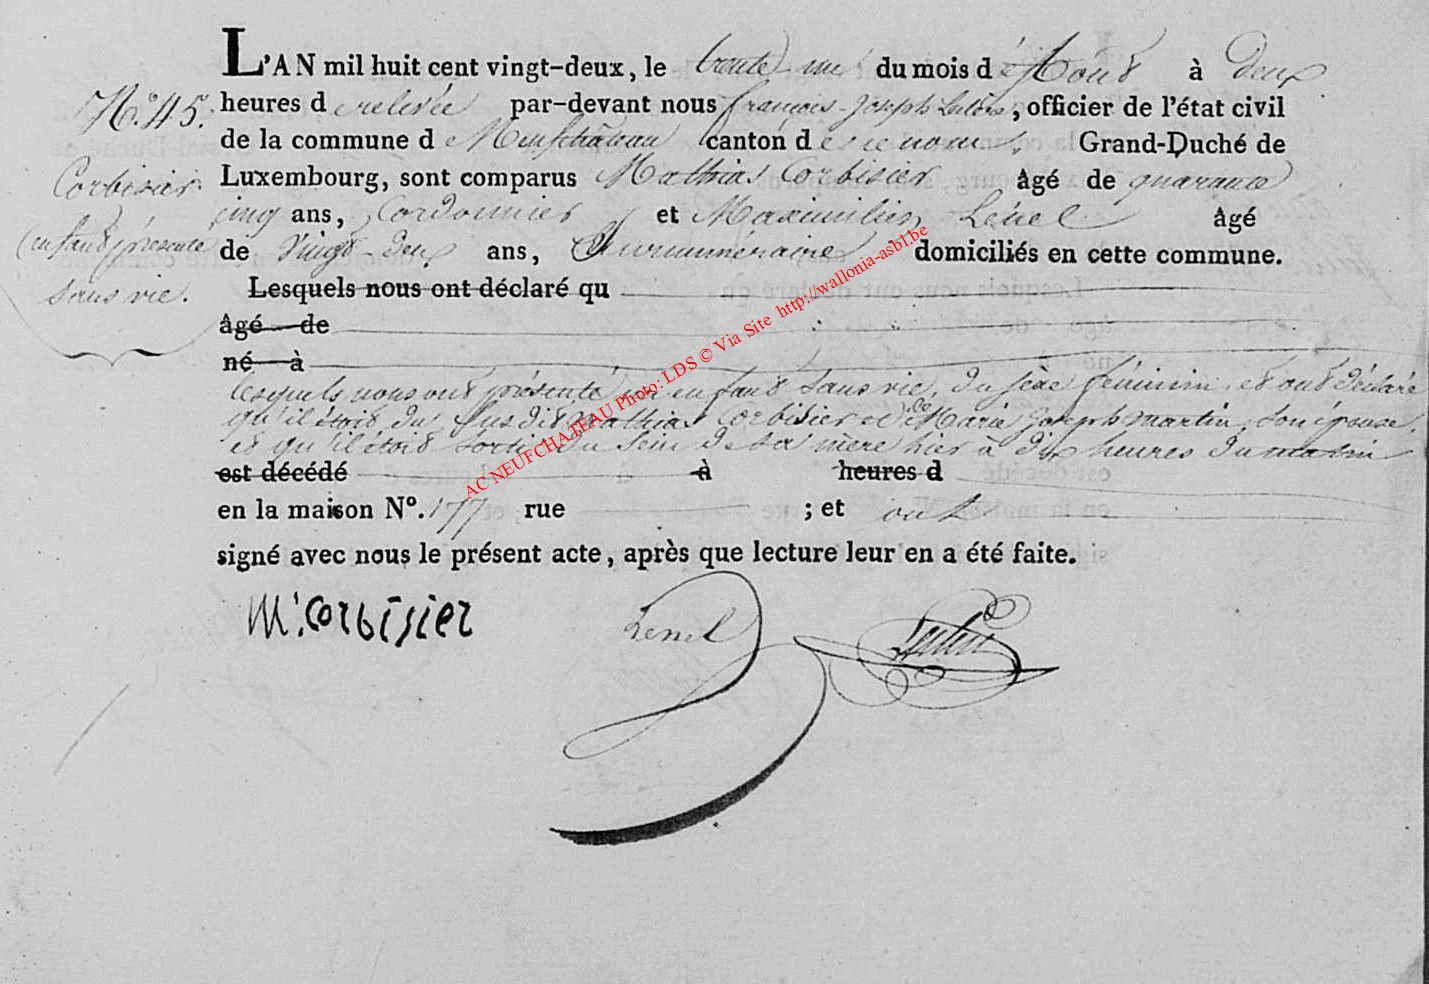 L'AN mil huit cent vingt-deux, le trente un du mois d'Aout à deux
N.° 45. heures de relevée par-devant nous françois-Joseph, officier de l'état civil
de la commune de Neufchâteau canton de ce nom Grand-Duché de
Corbisier. Luxembourg, sont comparus Mathias Corbisier âgé de quarante
cinq ans, Cordonnier et Maximilien Lenel âgé
(enfant présenté de vingt-deux ans, Surnuméraire domiciliés en cette commune.
sans vie. Lesquels nous ont déclaré qu
âgé de
né à
Lesquels nous ont présenté un enfant sans vie, du sexe féminin, et ont déclaré
qu'il étoit du susdit Mathias Corbisier et de Marie Joseph martin, son épouse,
et qu'il étoit sorti du sein de sa mère hier à dix heures du matin
est décédé à heures d
en la maison N°. 177 rue ; et ont
signé avec nous le présent acte, après que lecture leur en a été faite.
M. Corbisier Lenel
AC NEUFCHATEAU Photo: LDS © Via Site http://wallonia-asbl.be